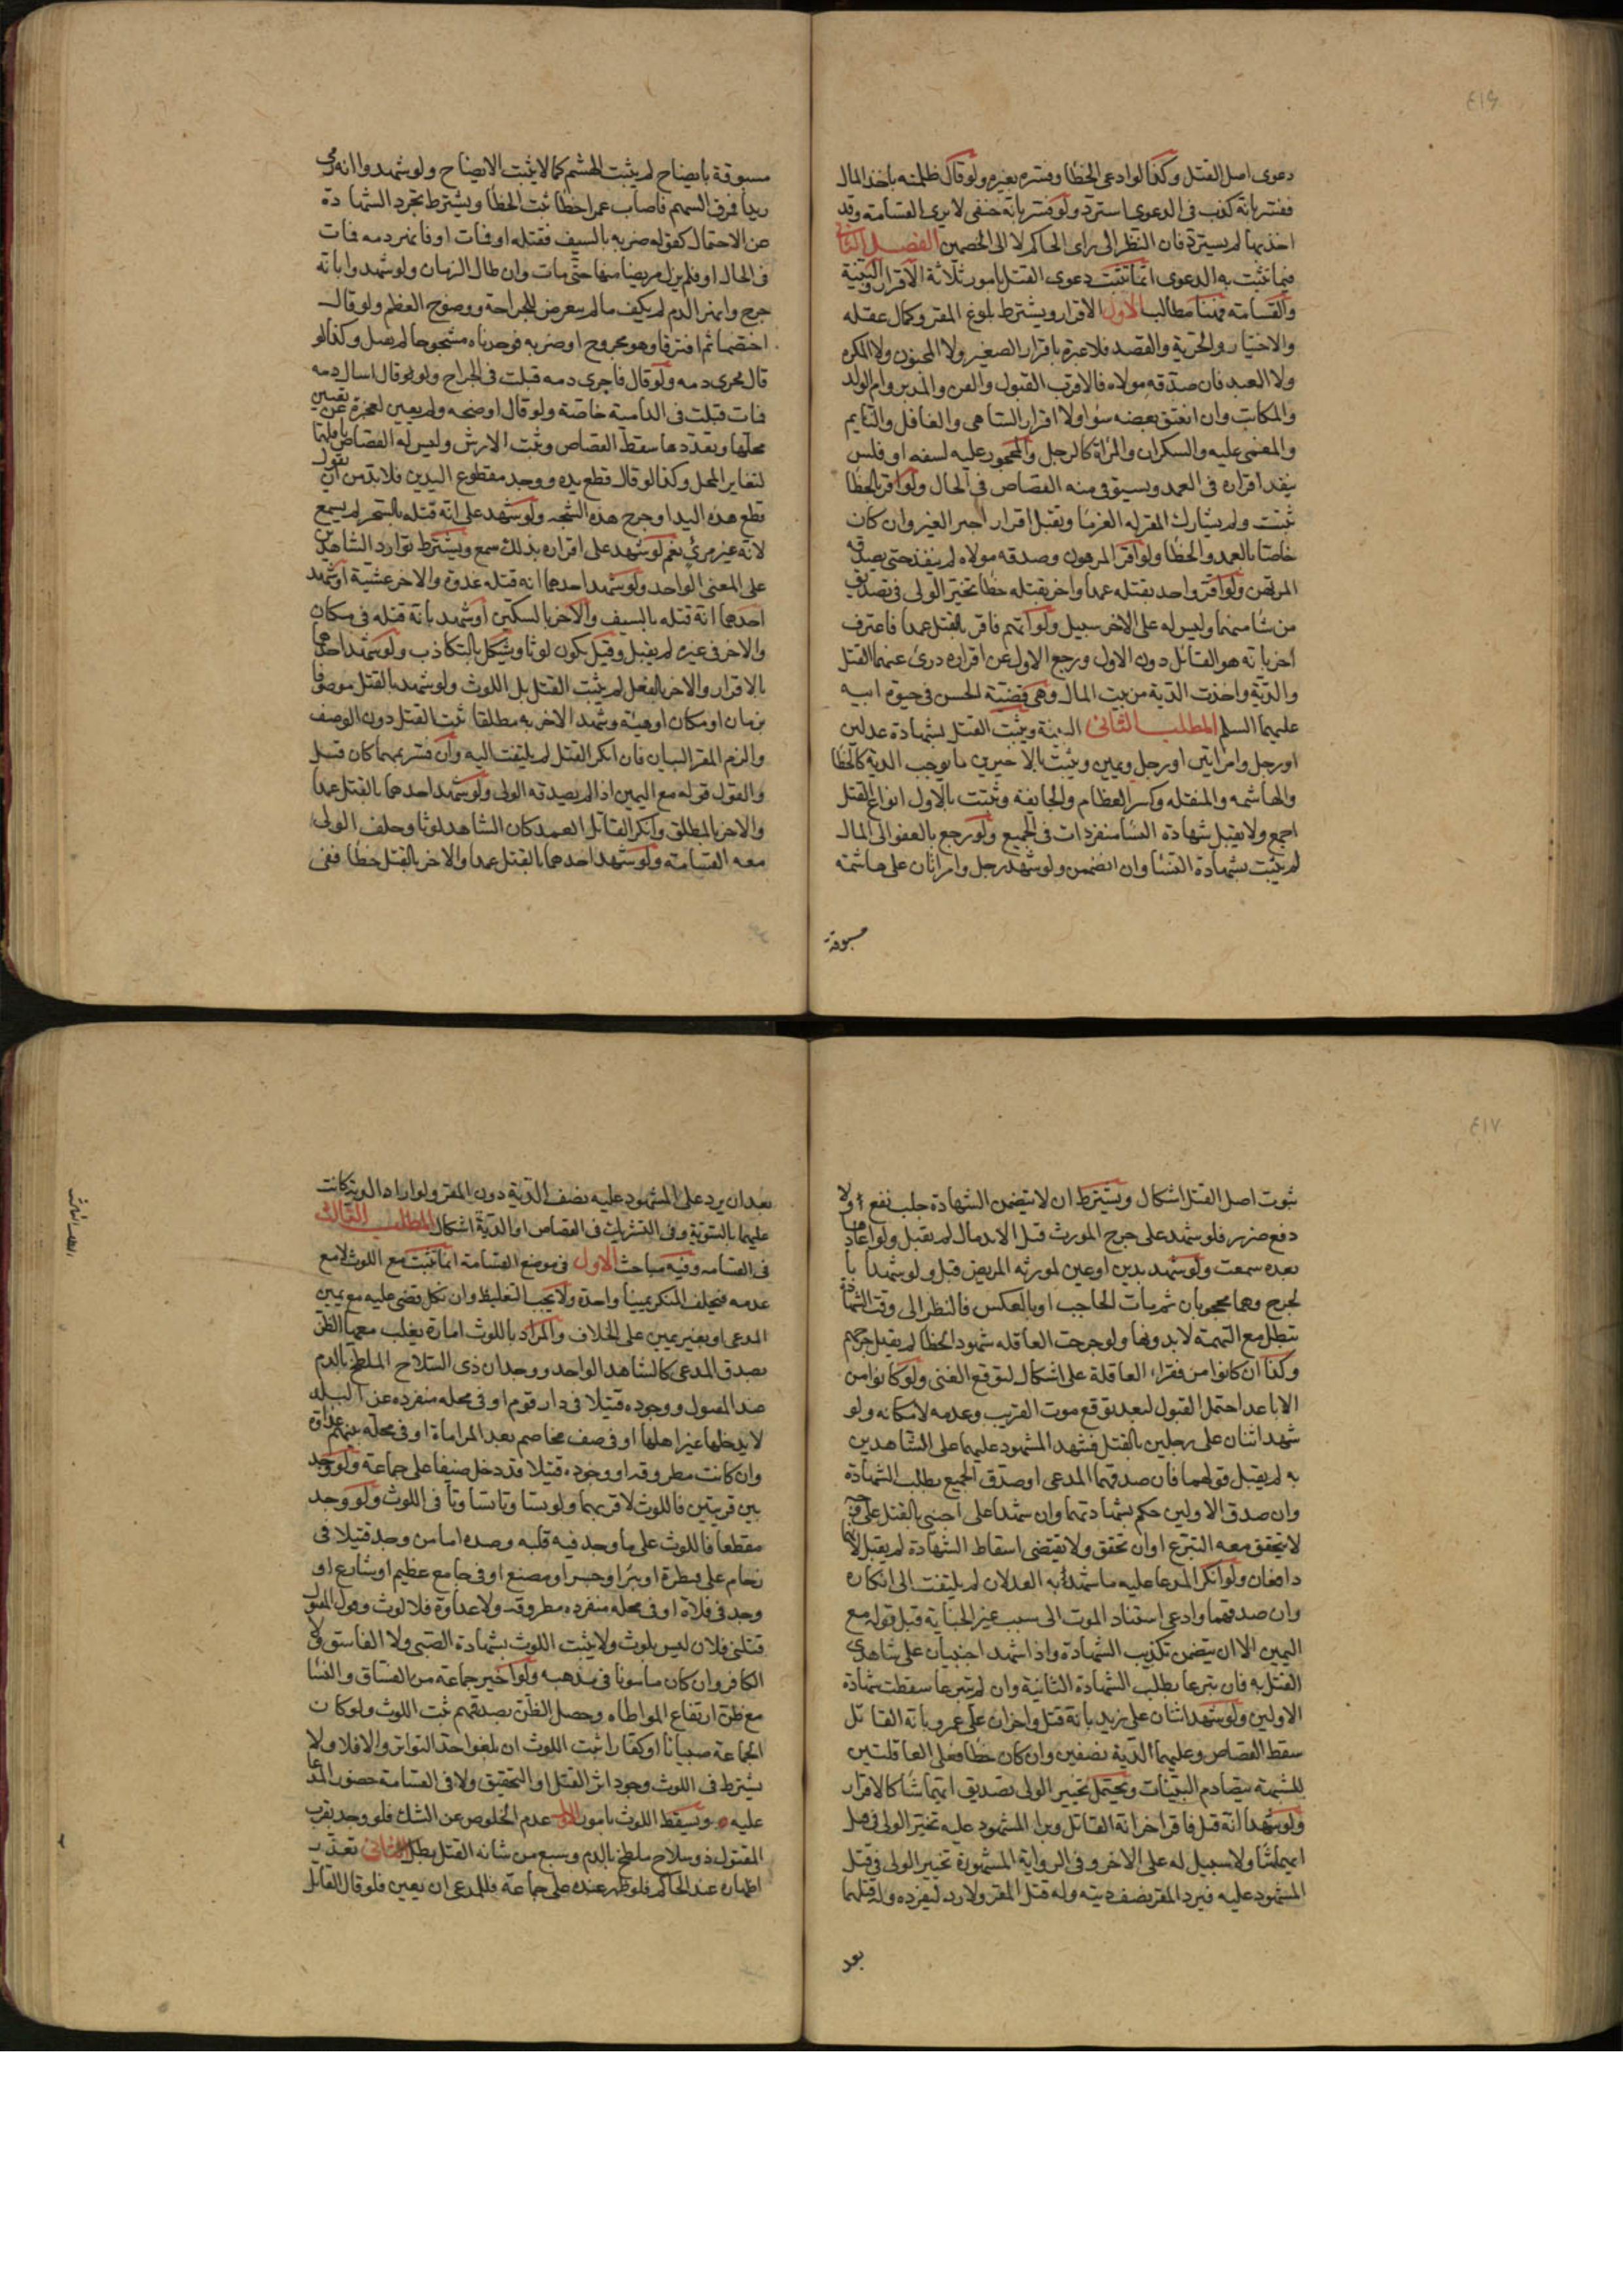 ٤١٦
دعوى اصل القتل وكذا لو ادعى الخطا وفسره بغيره ولو قال ظلمته باخذ المال
ففسر بانه كذب فى الدعوى استرد ولو فسر بانه حنفى لا يرى القسامة وقد
اخذ بها لم يسترد فان النظر الى راى الحاكم لا الى الخصمين الفصل الثانى
فيما تثبت به الدعوى انما تثبت دعوى القتل بامور ثلاثة الاقرار والبينة
والقسامة فهنا مطالب الاول الاقرار ويشترط بلوغ المقر وكمال عقله
والاختيار والحرية والقصد فلا عبرة باقرار الصغير ولا المجنون ولا المكره
ولا العبد فان صدقه مولاه فالاقرب القبول والقن والمدبر وام الولد
والمكاتب وان انعتق بعضه سواء ولا اقرار الساهى والغافل والنايم
والمغمى عليه والسكران والمراة كالرجل والمحجور عليه لسفه او فلس
ينفذ اقراره فى العمد ويستوفى منه القصاص فى الحال ولو اقر بالخطا
ثبتت ولم يشارك المقر له الغرما وتقبل اقرار اجير الغير وان كان
خاصا بالعمد والخطا ولو اقر المرهون وصدقه مولاه لم ينفذ حتى يصدقه
المرتهن ولو اقر واحد بقتله عمدا واخر بقتله خطا تخير الولى فى تصديق
من شا منهما وليس له على الاخر سبيل ولو اتهم فاقر بالقتل عمدا فاعترف
اخر بانه هو القاتل دون الاول ورجع الاول عن اقراره درئ عنهما القتل
والدية واخذت الدية من بيت المال وهى قضية الحسن فى حيوة ابيه
عليهما السلم المطلب الثانى البينة ويثبت القتل بشهادة عدلين
او رجل وامراتين او رجل ويمين ويثبت بالاخيرين ما يوجب الدية كالخطا
والهاشمه والمنقله وكسر العظام والجايفة وتثبت بالاول انواع القتل
اجمع ولا يقبل شهادة النسا منفردات فى الجميع ولو رجع بالعفو الى المال
لم يثبت بشهادة النسا وان انضممن ولو شهد رجل وامراتان على هاشمة
مسبوقة
مسبوقة بايضاح لم يثبت الهشم كما لا يثبت الايضاح ولو شهدوا انه رمى
زيدا فمرق السهم فاصاب عمرا خطا ثبت الخطا ويشترط تجرد الشهادة
عن الاحتمال كقوله ضربه بالسيف فقتله او فمات او فانهر دمه فمات
فى الحال او فلم يزل مريضا منها حتى مات وان طال الزمان ولو شهدوا بانه
جرح وانهر الدم لم يكف ما لم يتعرض للجراحة ووضوح العظم ولو قال
اختصما ثم افترقا وهو مجروح او ضربه فوجدناه مشجوجا لم يقبل وكذا لو
قال فجرى دمه ولو قال فاجرى دمه قبلت فى الجراح ولو قال اسال دمه
فمات قبلت فى الدامية خاصة ولو قال اوضحه ولم يعين لعجزه عن تعيين
محلها وتعددها سقط القصاص وثبت الارش وليس له القصاص باقلهما
لتغاير المحل وكذا لو قال قطع يده ووجد مقطوع اليدين فلا بد من ان يقول
قطع هذه اليد او جرح هذه الشجه ولو شهد على انه قتله بالسحر لم يسمع
لانه غير مرئى نعم لو شهد على اقراره بذلك سمع ويشترط توارد الشاهدين
على المعنى الواحد ولو شهد احدهما انه قتله غدوة والاخر عشية او شهد
احدهما انه قتله بالسيف والاخر بالسكين او شهد بانه قتله فى مكان
والاخر فى غيره لم يقبل وقيل يكون لوثا ويشكل بالتكاذب ولو شهد احدهما
بالاقرار والاخر بالفعل لم يثبت القتل بل اللوث ولو شهد بالقتل موصوفا
بزمان او مكان او هيئة وشهد الاخر به مطلقا ثبت القتل دون الوصف
والزم المقر البيان فان انكر القتل لم يلتفت اليه وان فسر بهما كان قبل
والقول قوله مع اليمين اذا لم يصدقه الولى ولو شهد احدهما بالقتل عمدا
والاخر بالمطلق وانكر القاتل العمد كان الشاهد لوثا وحلف الولى
معه القسامة ولو شهد احدهما بالقتل عمدا والاخر بالقتل خطا ففى
٤١٧
ثبوت اصل القتل اشكال ويشترط ان لا يتضمن الشهادة جلب نفع او لا
دفع ضرر فلو شهد على جرح المورث قبل الاندمال لم يقبل ولو اعادها
بعده سمعت ولو شهد بدين او عين لمورثه المريض قبل ولو شهدا با
لجرح وهما محجوبان ثم مات الحاجب او بالعكس فالنظر الى وقت الشهادة
تبطل مع التهمة لا بدونها ولو جرحت العاقله شهود الخطا لم يقبل جرحهم
وكذا ان كانوا من فقراء العاقلة على اشكال لتوقع الغنى ولو كانوا من
الاباعد احتمل القبول لبعد توقع موت القريب وعدمه لامكانه ولو
شهد اثنان على رجلين بالقتل فشهد المشهود عليهما على الشاهدين
به لم يقبل قولهما فان صدقهما المدعى او صدق الجميع بطلب الشهادة
وان صدق الاولين حكم بشهادتهما وان شهدا على اجنبى بالقتل على وجه
لا يتحقق معه التبرع او ان تحقق ولا يقتضى اسقاط الشهادة لم يقبل لانهما
دافعان ولو انكر المدعا عليه ما شهد به العدلان لم يلتفت الى انكاره
وان صدقهما وادعى استناد الموت الى سبب غير الجناية قبل قوله مع
اليمين الا ان يتضمن تكذيب الشهادة واذا شهد اجنبيان على شاهدى
القتل به فان تبرعا بطلب الشهادة الثانية وان لم يتبرعا سقطت شهادة
الاولين ولو شهد اثنان على زيد بانه قتل واخران على عمرو بانه القاتل
سقط القصاص وعليهما الدية نصفين وان كان خطا فعلى العاقلتين
للشبهة بتصادم البينات ويحتمل تخيير الولى بصديق ايهما شا كالاقرار
ولو شهدا انه قتل فاقر اخر انه القاتل وبرا المشهود عليه تخير الولى فى قتل
ايهما شا ولا سبيل له على الاخر وفى الرواية المشهورة تخيير الولى فى قتل
المشهود عليه فيرد المقر نصف ديته وله قتل المقر ولا رد ليفرده وله قتلهما
بعد
بعد ان يرد على المشهود عليه نصف الدية دون المقر ولو اراد الدية كانت
عليهما بالسوية وفى التشريك فى القصاص او الدية اشكال المطلب الثالث
فى القسامه وفيه مباحث الاول فى موضع القسامة انما تثبت مع اللوث لا مع
عدمه فيحلف المنكر يمينا واحدة ولا يجب التغليظ وان نكل قضى عليه مع يمين
المدعى او بغير يمين على الخلاف والمراد باللوث امارة يغلب معها الظن
بصدق المدعى كالشاهد الواحد ووجدان ذى السلاح الملطخ بالدم
عند المقتول ووجوده قتيلا فى دار قوم او فى محله منفرده عن البلد
لا يدخلها غير اهلها او فى صف مخاصم بعد المراماة او فى محلة بينهم عداوة
وان كانت مطروقه او وجوده قتيلا قد دخل ضيفا على جماعة ولو وجد
بين قريتين فاللوث لاقربهما ولو تساوتا تساوتا فى اللوث ولو وجد
مقطعا فاللوث على ما وجد فيه قلبه وصدره اما من وجد قتيلا فى
زحام على قنطرة او بئر او جسر او مصنع او فى جامع عظيم او شارع او
وجد فى فلاة او فى محلة منفرده مطروقه ولا عداوة فلا لوث وقول المقتول
قتلنى فلان ليس بلوث ولا يثبت اللوث بشهادة الصبى ولا الفاسق ولا
الكافر وان كان مامونا فى مذهبه ولو اخبر جماعة من الفساق والنسا
مع ظن ارتفاع المواطاه وحصل الظن بصدقهم ثبت اللوث ولو كان
الجماعة صبيانا او كفارا ثبت اللوث ان بلغوا حد التواتر والا فلا ولا
يشترط فى اللوث وجود اثر القتل او التخنيق ولا فى القسامة حضور المدعا
عليه ويسقط اللوث بامور الاول عدم الخلوص عن الشك فلو وجد بقرب
المقتول ذو سلاح ملطخ بالدم وسبع من شانه القتل بطل الثانى تعذر
اظهاره عند الحاكم فلو ظهر عنده على جماعة فللمدعى ان يعين فلو قال القاتل